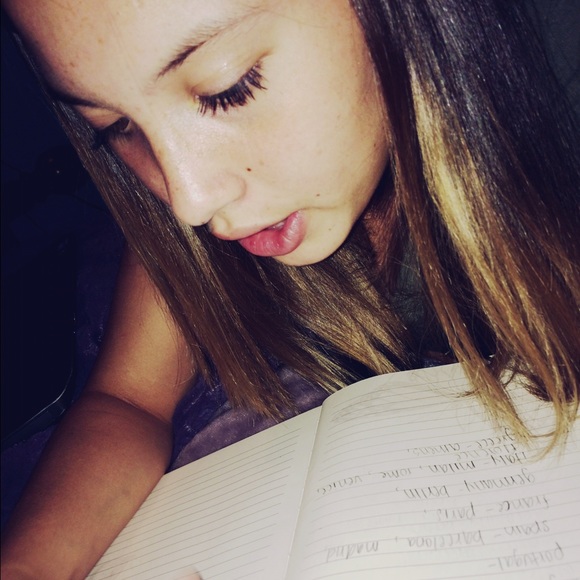 portugal -
spain - barcelona, madrid
france - paris.
germany berlin,
italy - milan, rome, venice,
florence
greece - athens,